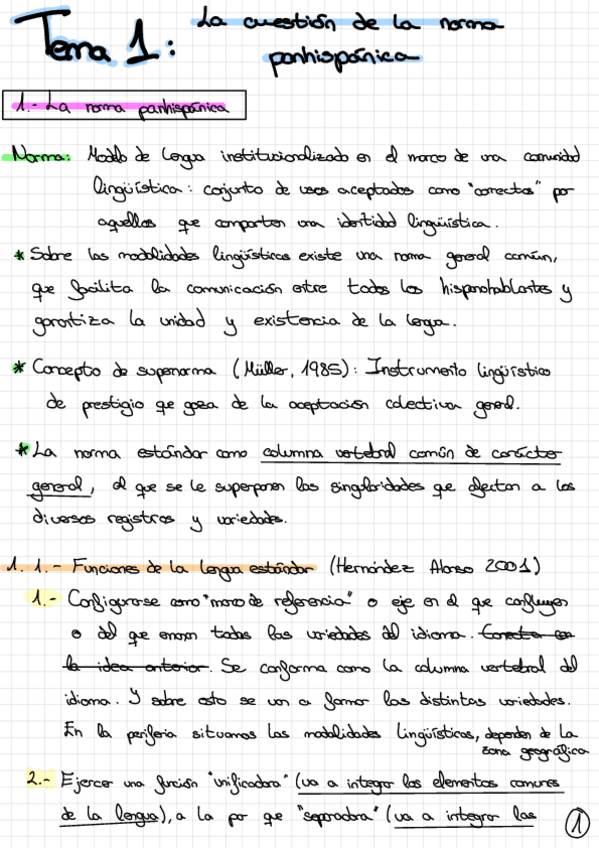 Tema 1: La cuestión de la norma
panhispánica
1.- La norma panhispánica
Norma: Modelo de lengua institucionalizado en el marco de una comunidad
lingüística: conjunto de usos aceptados como "correctos" por
aquellos que comparten una identidad lingüística.
* Sobre las modalidades lingüísticas existe una norma general común,
que facilita la comunicación entre todos los hispanohablantes y
garantiza la unidad y existencia de la lengua.
* Concepto de supernorma (Müller, 1985): Instrumento lingüístico
de prestigio que goza de la aceptación colectiva general.
* La norma estándar como columna vertebral común de carácter
general, al que se le superponen las singularidades que afectan a los
diversos registros y variedades.
1. 1.- Funciones de la lengua estándar (Hernández Alonso 2001)
1.- Configurarse como "marco de referencia" o eje en el que confluyen
o del que emanan todas las variedades del idioma. Conecta con
la idea anterior. Se conforma como la columna vertebral del
idioma. Y sobre esto se van a formar las distintas variedades.
En la periferia situamos las modalidades lingüísticas, dependen de la
zona geográfica
2.- Ejercer una función "unificadora" (va a integrar los elementos comunes
de la lengua), a la par que "separadora" (va a integrar las
1